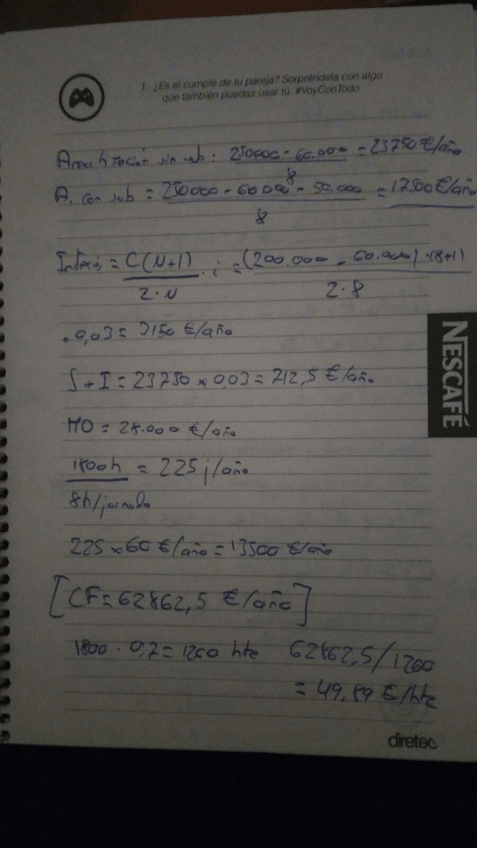 1. ¿Es el cumple de tu pareja? Sorpréndela con algo
que también puedas usar tú. #VoyConTodo
Amortización sin sub: 250000 - 60.000 = 23750 €/año
8
A. con sub = 250000 - 60000 - 50.000 = 17500 €/año
8
Interés = C(N+1) · i = (200.000 - 60.000) · (8+1)
2·N 2·8
· 0,03 = 3150 €/año
S + I = 23750 x 0,03 = 712,5 €/año
MO = 28.000 €/año
1800h = 225 j/año
8h/jornada
225 x 60 €/año = 13500 €/año
[CF = 62862,5 €/año]
1800 · 0,7 = 1260 hte 62862,5/1260
= 49,89 €/hte
NESCAFÉ
diretec